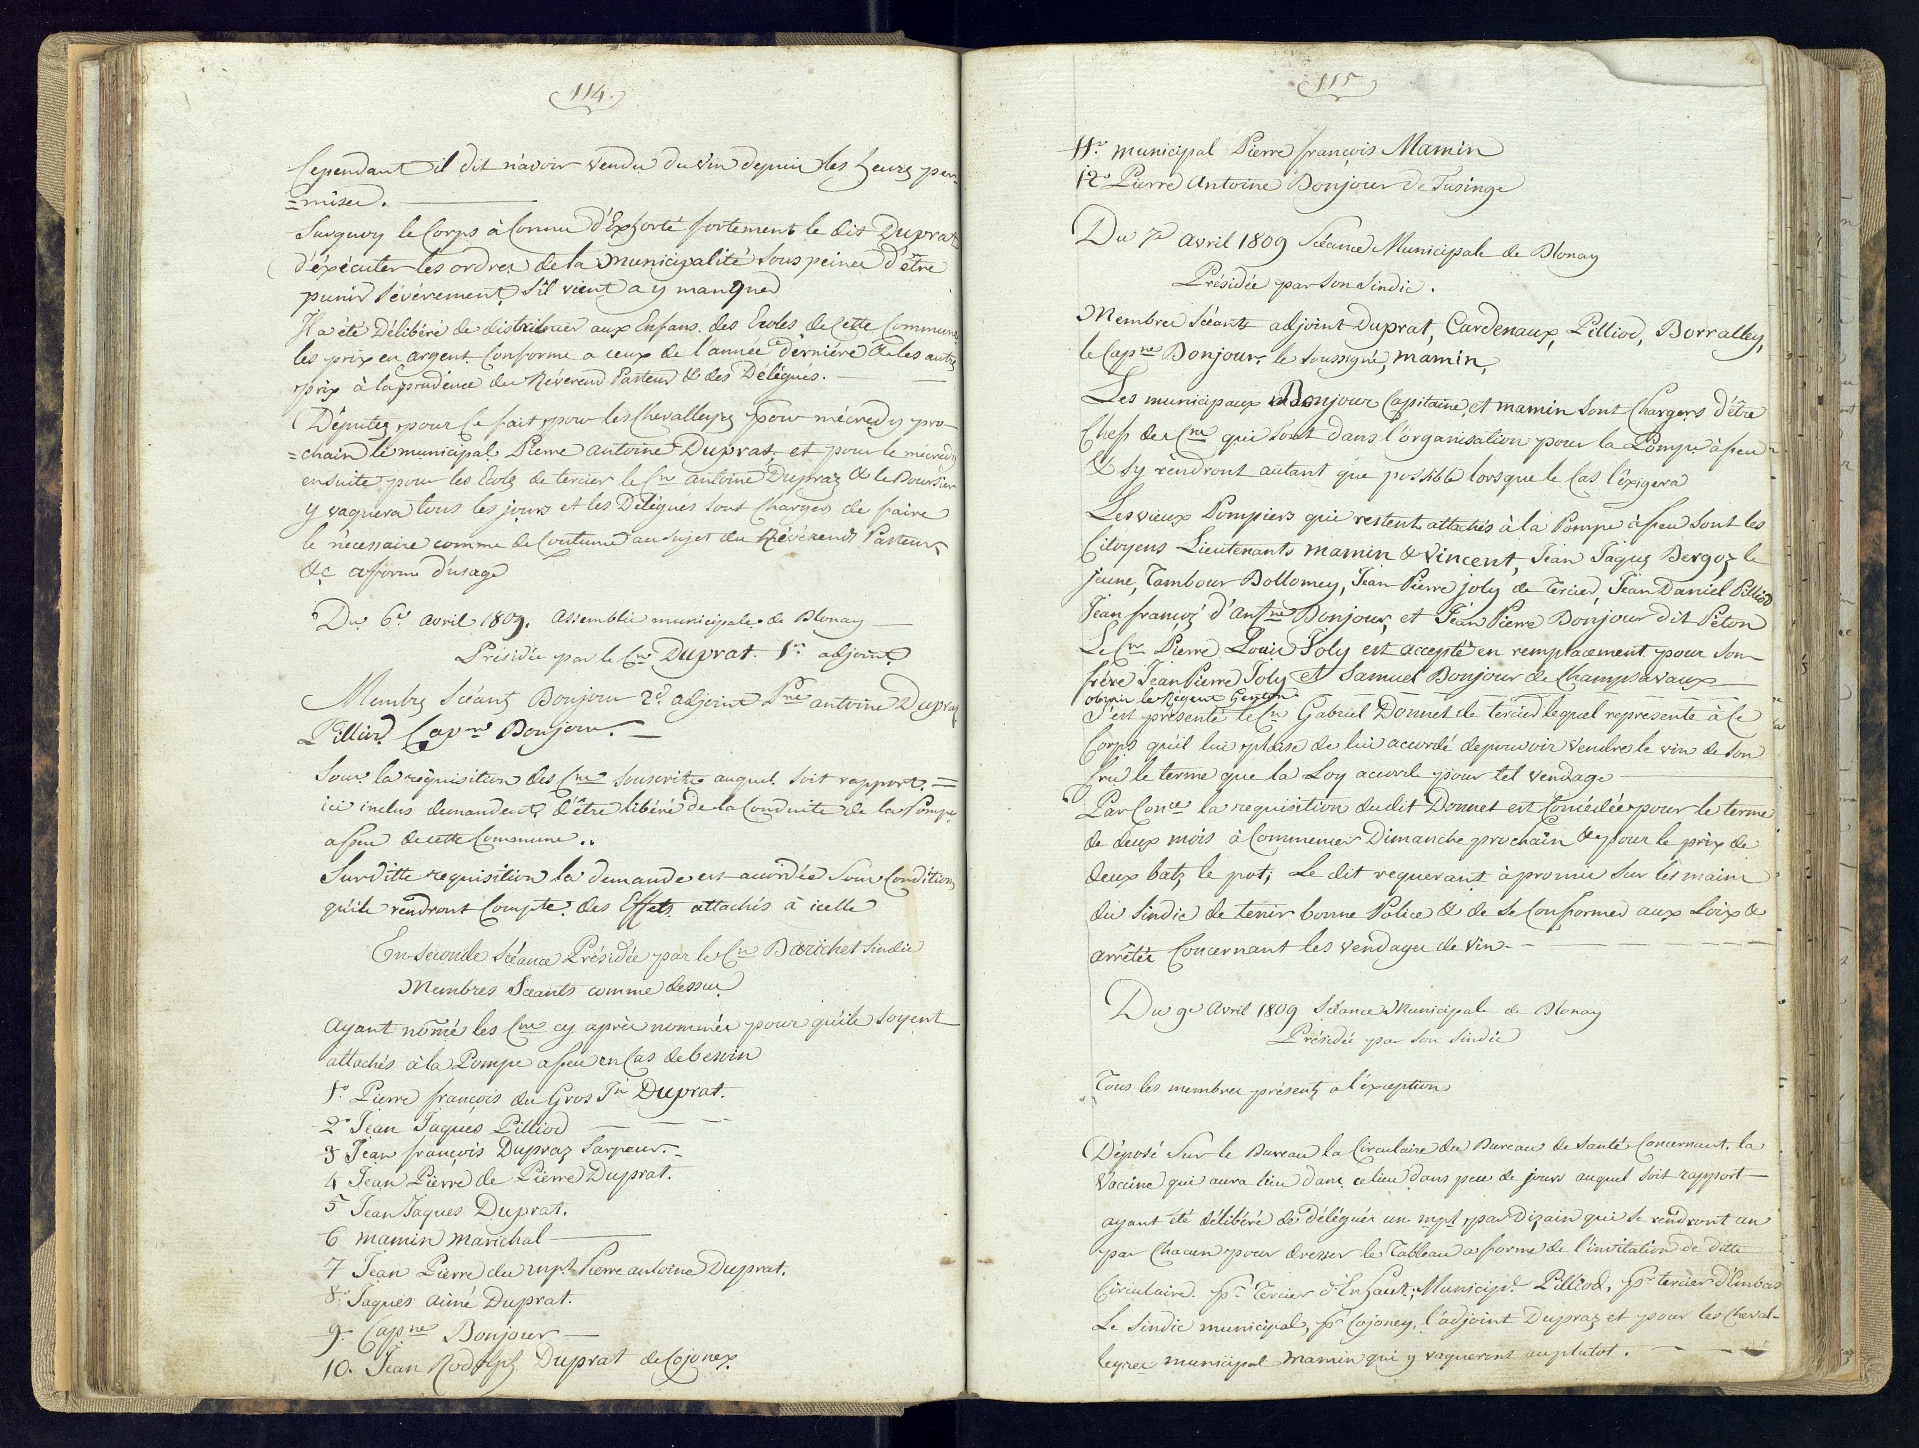 114.
Cependant il dit n'avoir vendu du vin depuis les heures per-
=mises.
Surquoy le Corps à Connu d'Exhorté fortement le dit Duprat
d'éxécuter les ordres de la municipalité sous peines d'être
punir sévérement, s'il vient a y manqued
Il a été Délibéré de distribuer aux Enfans des Ecoles de Cette Commune
les prix en argent Conforme a ceux de l'année dérnière & les autres
prix à la prudence du Révérend Pasteur & des Délégués.
Députés pour Ce fait, pour les Chevalleyres pour mécredy pro-
=chain le municipal Pierre antoine Duprat, et pour le mécredy
ensuite pour les Ecols de tercier le Cn antoine Dupraz & le Boursier
y vaquera tous les jours et les Délégués sont Chargés de faire
le nécessaire comme de Coutume au sujet du Révérend Pasteur,
&c a forme d'usage
Du 6e avril 1809. Assemblée municipale de Blonay
Présidée par le Cn Duprat. 1er adjoint
Membres Scéants Bonjour 2d adjoint Pre antoine Dupraz
Pilliod Capne Bonjour.
Sous la réquisition des Cns souscrits auquel soit rapport =
ici inclus demandants d'être libéré de la Conduite de la Pompe
a feu de cette Commune..
Surditte requisition la demande est accordée sous Condition
qu'ils rendront Compte des Effets attachés à icelle
En seconde Scéance Présidée par le Cn Barichet sindic
Membres Scéants comme dessus
Ayant nomé les Cns cy après nommés pour qu'ils soyent
attachés à la Pompe a feu en Cas de besoin
1° Pierre françois du Gros Jn Duprat.
2° Jean Jaques Pilliod
3 Jean françois Dupraz Sarpeur.
4 Jean Pierre de Pierre Duprat.
5 Jean Jaques Duprat.
6 mamin maréchal
7 Jean Pierre du mpl Pierre antoine Duprat.
8° Jaques aimé Duprat.
9. Capne Bonjour
10. Jean Rodolph Duprat de Cojonex
115
11° municipal Pierre françois Mamin
12° Pierre Antoine Bonjour de Tusinge
Du 7e avril 1809 Scéance Municipale de Blonay
Présidée par son Sindic.
Membres Scéants adjoint Duprat, Cardenaux, Pilliod, Borralley,
le Capne Bonjour, le soussigné, mamin,
Les municipaux Bonjour Capitaine, et mamin sont Chargés d'être
Chefs des Cns qui sont dans l'organisation pour la Pompe à feu
& s'y rendront autant que possible lorsque le Cas l'éxigera
Les vieux Pompiers qui restent attachés à la Pompe à feu sont les
Citoyens Lieutenants mamin & Vincent, Jean Jaques Bergoz le
jeune, Tambour Dollomey, Jean Pierre joly de Tercier, Jean Daniel Pilliod
Jean françois d'antne Bonjour, et Jean Pierre Bonjour dit Péton
Le Cn Pierre Louis Joly est accepté en remplacement pour son
frère Jean Pierre Joly et Samuel Bonjour de Champsavaux
le Régent
S'est présenté le Cn Gabriel Donnet de tercier lequel represente à Ce
Corps qu'il lui plaise de lui accordé de pouvoir vendre le vin de son
Cru le terme que la Loy accorde pour tel vendage
Par Conce la requisition dudit Donnet est Concédée pour le terme
de deux mois à Commencer Dimanche prochain & pour le prix de
deux batz le pot; Le dit requerant à promis sur les mains
du Sindic de tenir bonne Police & de se Conformer aux Loix &
arrêtés Concernant les vendages de vin
Du 9e Avril 1809 Scéance Municipale de Blonay
Présidée par son Sindic
Tous les membres présents a l'éxception
Déposé Sur le Bureau la Circulaire du Bureau de Santé Concernant la
Vaccine qui aura lieu dans ce lieu dans peu de jours auquel soit rapport
ayant été délibéré de déléguer un mpl par Dizain qui se rendront un
par Chacun pour dresser le Tableau a forme de l'invitation de ditte
Circulaire. pr Tercier d'Enhaut, Municipl Pilliod, pr tercier d'Enbas
Le Sindic municipal, pr Cojoney, l'adjoint Dupraz et pour les Cheval-
leyres municipal Mamin qui y vaqueront au plutot.